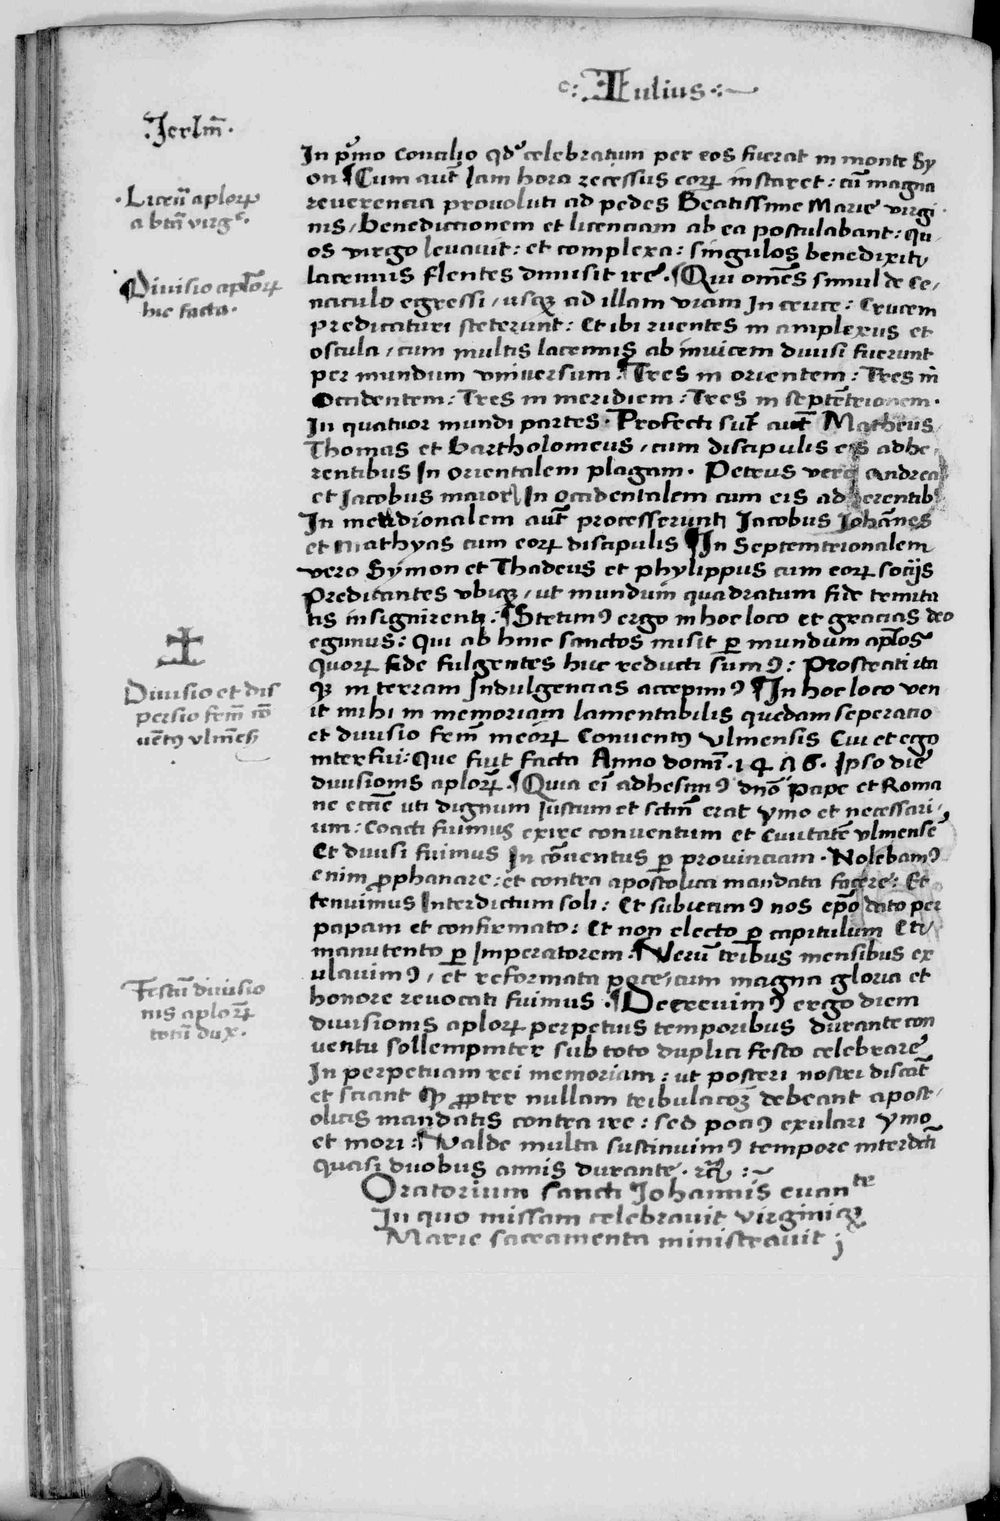 c: Iulius
Jerlm̄.
In p̓mo Concilio qd̓ celebratum per eos fuerat in monte Sy
on ¶ Cum aut̄ Iam hora recessus eoꝝ instaret: cū magna
Licen̄ aploꝝ
reverencia provoluti ad pedes Beatissime Marie virgi
a btā virg̓.
nis, benedictionem et licenciam ab ea postulabant: Qu
os virgo levavit: et complexa: singulos benedixit,
Divisio aplōꝝ
lacrimis flentes dimisit ire. ¶ Qui om̄es simul de Ce,
hic facta.
naculo egressi, usqꝫ ad illam viam In cruce: Crucem
predicaturi steterunt: Et ibi ruentes in amplexus et
oscula, cum multis lacrimis ab invicem divisi fuerunt
per mundum universum: ¶ Tres in orientem: Tres in
Occidentem: Tres in meridiem: Tres in septētrionem.
In quatuor mundi partes. Profecti sūt aut̄ Matheus
Thomas et Bartholomeus, cum discipulis eis adhe,
rentibus In orientalem plagam. Petrus vero Andreas
et Jacobus maior In Occidentalem cum eis adherentib̓
In meridionalem aut̄ processerunt, Jacobus Johānes
et Mathyas cum eoꝝ discipulis ¶ In Septemtrionalem
vero Symon et Thadeus et phylippus cum eoꝝ socijs
Predicantes ubiqꝫ, ut mundum quadratum fide trinita
tis insignirent: ¶ Stetimꝰ ergo in hoc loco et gracias deo
egimus: Qui ab hinc sanctos misit ꝑ mundum aplōs
quoꝝ fide fulgentes huc reducti sumꝰ: Prostrati ita
Divisio et dis
qꝫ in terram Indulgencias accepimꝰ ¶ In hoc loco ven
persio frm̄ cō
it mihi in memoriam lamentabilis quedam seperatio
vētꝰ ulmēsꝭ
et divisio frm̄ meoꝝ Conventꝰ Ulmensis Cui et ego
interfui: Que fuit facta Anno domī. 14 Ipso die
divisionis aploꝝ. ¶ Quia ei adhesimꝰ dn̄o pape et Roma
ne ecclīe uti dignum iustum et sctm̄ erat ymo et necessari,
um: Coacti fuimus exire conventum et Civitatē ulmensē
Et divisi fuimus In cōventus ꝑ provinciam. Nolebamꝰ
enim ꝓphanare: et contra apostolica mandata facere: Et
tenuimus Interdictum soli: Et subiecimꝰ nos ep̄o dato per
papam et confirmato: Et non electo ꝑ capitulum Et,
manutento ꝑ Imperatorem. ¶ Verū tribus mensibus ex
ulavimꝰ, et reformata pace, cum magna gloria et
Festū divisio
honore revocati fuimus. ¶ Decrevimꝰ ergo diem
nis aploꝝ
divisionis aploꝝ perpetuis temporibus durante con
totū dux.
ventu sollempniter sub toto duplici festo celebrare
In perpetuam rei memoriam: ut posteri nostri discāt
et sciant qꝫ ꝓpter nullam tribulacōꝫ debeant apost,
olicis mandatis contra ire: sed pociꝰ exulari ymo
et mori: ¶ Valde multa sustinuimꝰ tempore interdcti
quasi duobus annis durante. rc̄.
Oratorium sancti Johannis evan
In quo missam celebravit virginiqꝫ
Marie sacramenta ministravit